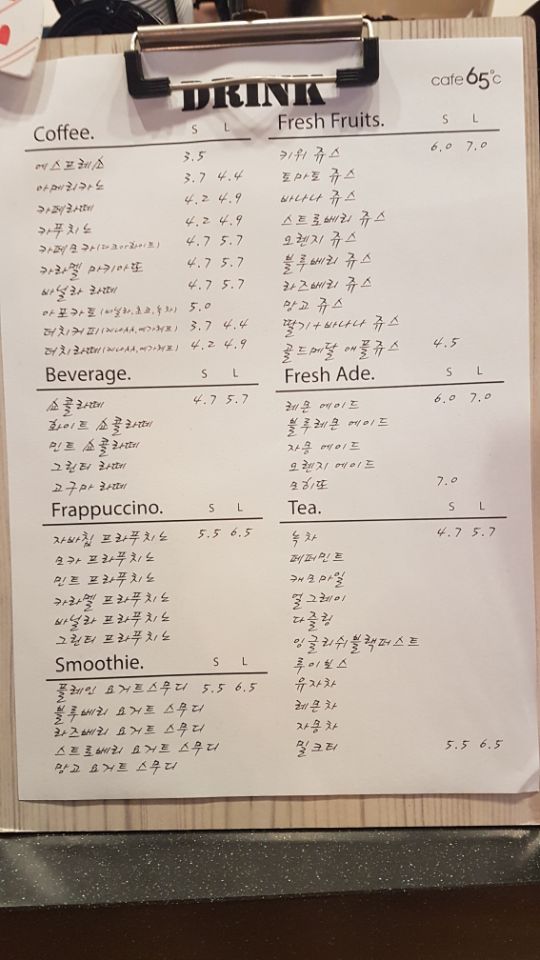 DRINK
cafe 65°c
Coffee. S L
에스프레소 3.5
아메리카노 3.7 4.4
카페라떼 4.2 4.9
카푸치노 4.2 4.9
카페모카(다크or화이트) 4.7 5.7
카라멜 마키아또 4.7 5.7
바닐라 라떼 4.7 5.7
아포카토(바닐라,초코,녹차) 5.0
더치커피(케냐AA,예가체프) 3.7 4.4
더치라떼(케냐AA,예가체프) 4.2 4.9
Beverage. S L
쇼콜라떼 4.7 5.7
화이트 쇼콜라떼
민트 쇼콜라떼
그린티 라떼
고구마 라떼
Frappuccino. S L
자바칩 프라푸치노 5.5 6.5
모카 프라푸치노
민트 프라푸치노
카라멜 프라푸치노
바닐라 프라푸치노
그린티 프라푸치노
Smoothie. S L
플레인 요거트스무디 5.5 6.5
블루베리 요거트 스무디
라즈베리 요거트 스무디
스트로베리 요거트 스무디
망고 요거트 스무디
Fresh Fruits. S L
키위 쥬스 6.0 7.0
토마토 쥬스
바나나 쥬스
스트로베리 쥬스
오렌지 쥬스
블루베리 쥬스
라즈베리 쥬스
망고 쥬스
딸기+바나나 쥬스
골드메달 애플쥬스 4.5
Fresh Ade. S L
레몬 에이드 6.0 7.0
블루레몬 에이드
자몽 에이드
오렌지 에이드
모히또 7.0
Tea. S L
녹차 4.7 5.7
페퍼민트
캐모마일
얼그레이
다즐링
잉글리쉬블랙퍼스트
루이보스
유자차
레몬차
자몽차
밀크티 5.5 6.5